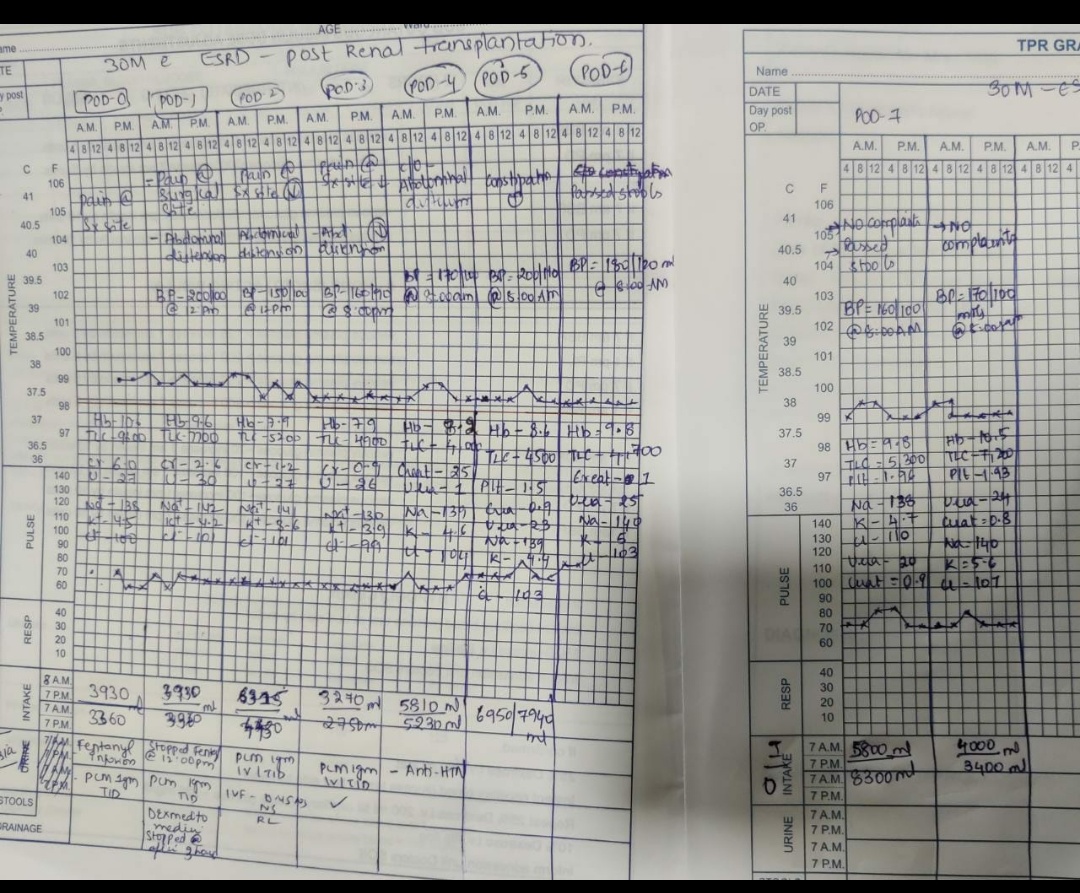 ame
AGE
Ward
30M c ESRD - post Renal transplantation.
TE
y post
POD-0 POD-1 POD-2 POD-3 POD-4 POD-5 POD-6
A.M. P.M. A.M. P.M. A.M. P.M. A.M. P.M. A.M. P.M. A.M. P.M. A.M. P.M.
4 8 12 4 8 12 4 8 12 4 8 12 4 8 12 4 8 12 4 8 12 4 8 12 4 8 12 4 8 12 4 8 12 4 8 12 4 8 12 4 8 12
C F
TEMPERATURE
106
41
105
40.5
104
40
103
39.5
102
39
101
38.5
100
38
99
37.5
98
37
97
36.5
36
Pain @
Sx site
- Pain @
Surgical
Site
- Abdominal
distension
BP-200/100
@ 12pm
Pain @
Sx site
Abdominal
distension
BP-150/100
@ 12pm
Pain @
Sx site ↓
- Abd
distension
@ 8:00pm
c/o -
Abdominal
BP = 170/100
@ 8:00am
Constipation
BP= 200/110
@ 8:00AM
Passed stools
BP= 180/120
@ 8:00AM
Hb-9.6 Hb-7.9 Hb-7.9 Hb-8.2 Hb-8.6 Hb=9.8
TLC-7700 TLC-5200 TLC-4900 TLC-4500 TLC-4,700
Cr 6.0 Cr-2.6 Cr-1.2 Cr-0.9 Creat-25 Plt-1.5 Creat-1
U-27 U-30 U-27 U-26 Urea-1 Crea-0.9 Urea-25
Na+-138 Na+-142 Na+-141 Na+-130 Na-139 Urea-23 Na-140
K+-4.5 K+-4.2 K+-3.6 K+-3.9 K-4.6 Na-139 K-5
Cl-100 Cl-101 Cl-101 Cl-99 Cl-104 K-4.4 Cl-103
Cl-103
PULSE
140
130
120
110
100
90
80
70
60
RESP
40
30
20
10
INTAKE
8 A.M.
7 P.M.
7 A.M.
7 P.M.
3930 3930 ml 3270 ml 5810 ml 6950/7940
3360 2750m 5230 ml ml
URINE
Fentanyl
infusion
- PCM 1gm
TID
Stopped Fenta
@ 12:00pm
PCM 1gm
TID
Dexmedto
medin
Stopped @
PCM 1gm
IV/TID
IVF - DNS
NS
RL
PCM 1gm
IV/TID
✓
- Anti-HTN
STOOLS
DRAINAGE
TPR GRA
Name
30M-ES
DATE
Day post
OP.
POD-7
A.M. P.M. A.M. P.
4 8 12 4 8 12 4 8 12 4 8 12 4 8
C F
TEMPERATURE
106
41
105
40.5
104
40
103
39.5
102
39
101
38.5
100
38
99
37.5
98
37
97
36.5
36
→ NO complaints
→ Passed
stools
BP= 160/100
@ 8:00AM
→ NO
complaints
BP= 170/100
mmHg
Hb=9.8
TLC=5,300
Plt-1.96
Na-138
K-4.7
Cl-110
Urea-20
Creat=0.9
Hb-10.5
TLC-7,200
Plt-1.93
Urea-24
Creat=0.8
Na-140
K=5.6
Cl-107
PULSE
140
130
120
110
100
90
80
70
60
RESP
40
30
20
10
O/I
INTAKE
7 A.M.
7 P.M.
7 A.M.
7 P.M.
5800 ml
8300ml
4000 ml
3400ml
URINE
7 A.M.
7 P.M.
7 A.M.
7 P.M.